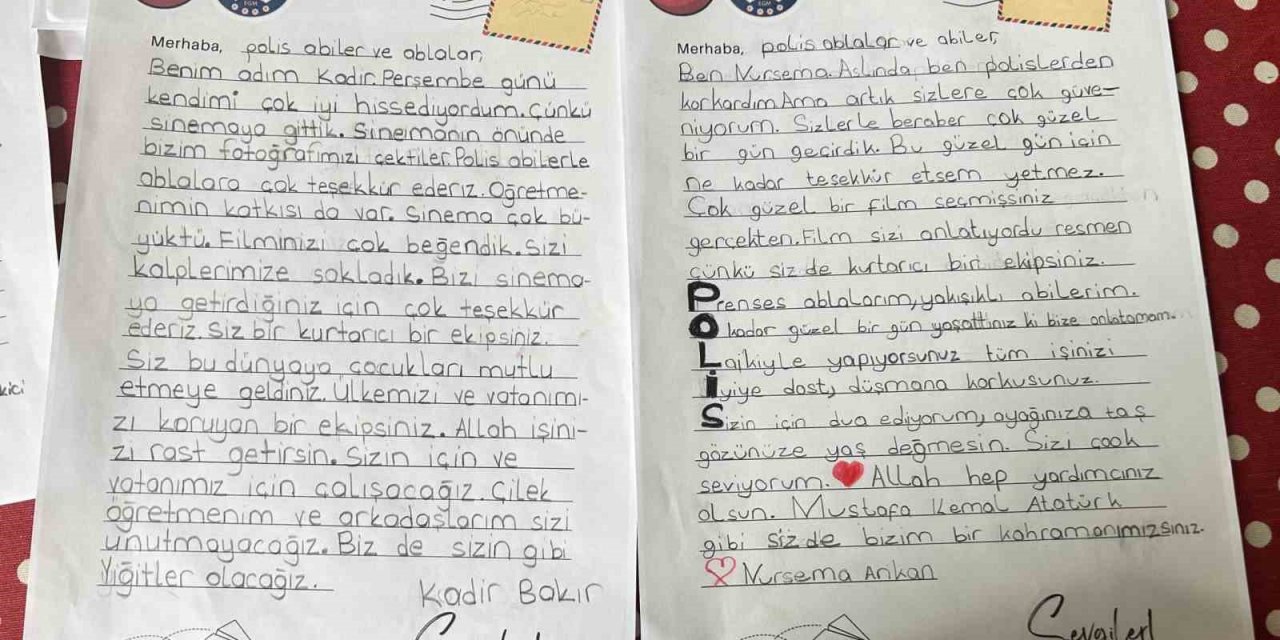 EGM
Merhaba, polis abiler ve ablalar,
Benim adım Kadir. Perşembe günü
kendimi çok iyi hissediyordum. Çünkü
sinemaya gittik. Sinemanın önünde
bizim fotoğrafımızı çektiler. Polis abilerle
ablalara çok teşekkür ederiz. Öğretme-
nimin katkısı da var. Sinema çok bü-
yüktü. Filminizi çok beğendik. Sizi
kalplerimize sakladık. Bizi sinema-
ya getirdiğiniz için çok teşekkür
ederiz. Siz bir kurtarıcı bir ekipsiniz.
Siz bu dünyaya çocukları mutlu
etmeye geldiniz. Ülkemizi ve vatanımı-
zı koruyan bir ekipsiniz. Allah işini-
zi rast getirsin. Sizin için ve
vatanımız için çalışacağız. Çilek
öğretmenim ve arkadaşlarım sizi
unutmayacağız. Biz de sizin gibi
Yiğitler olacağız.
Kadir Bakır
EGM
Merhaba, polis ablalar ve abiler,
Ben Nursema. Aslında ben polislerden
korkardım Ama artık sizlere çok güve-
niyorum. Sizlerle beraber çok güzel
bir gün geçirdik. Bu güzel gün için
ne kadar teşekkür etsem yetmez.
Çok güzel bir film seçmişsiniz
gerçekten. Film sizi anlatıyordu resmen
çünkü siz de kurtarıcı biri ekipsiniz.
Prenses ablalarım, yakışıklı abilerim.
O kadar güzel bir gün yaşattınız ki bize anlatamam..
Laikiyle yapıyorsunuz tüm işinizi
İyiye dost, düşmana korkusunuz.
Sizin için dua ediyorum, ayağınıza taş
gözünüze yaş değmesin. Sizi çook
seviyorum. Allah hep yardımcınız
olsun. Mustafa Kemal Atatürk
gibi siz de bizim bir kahramanımızsınız.
Nursema Arıkan